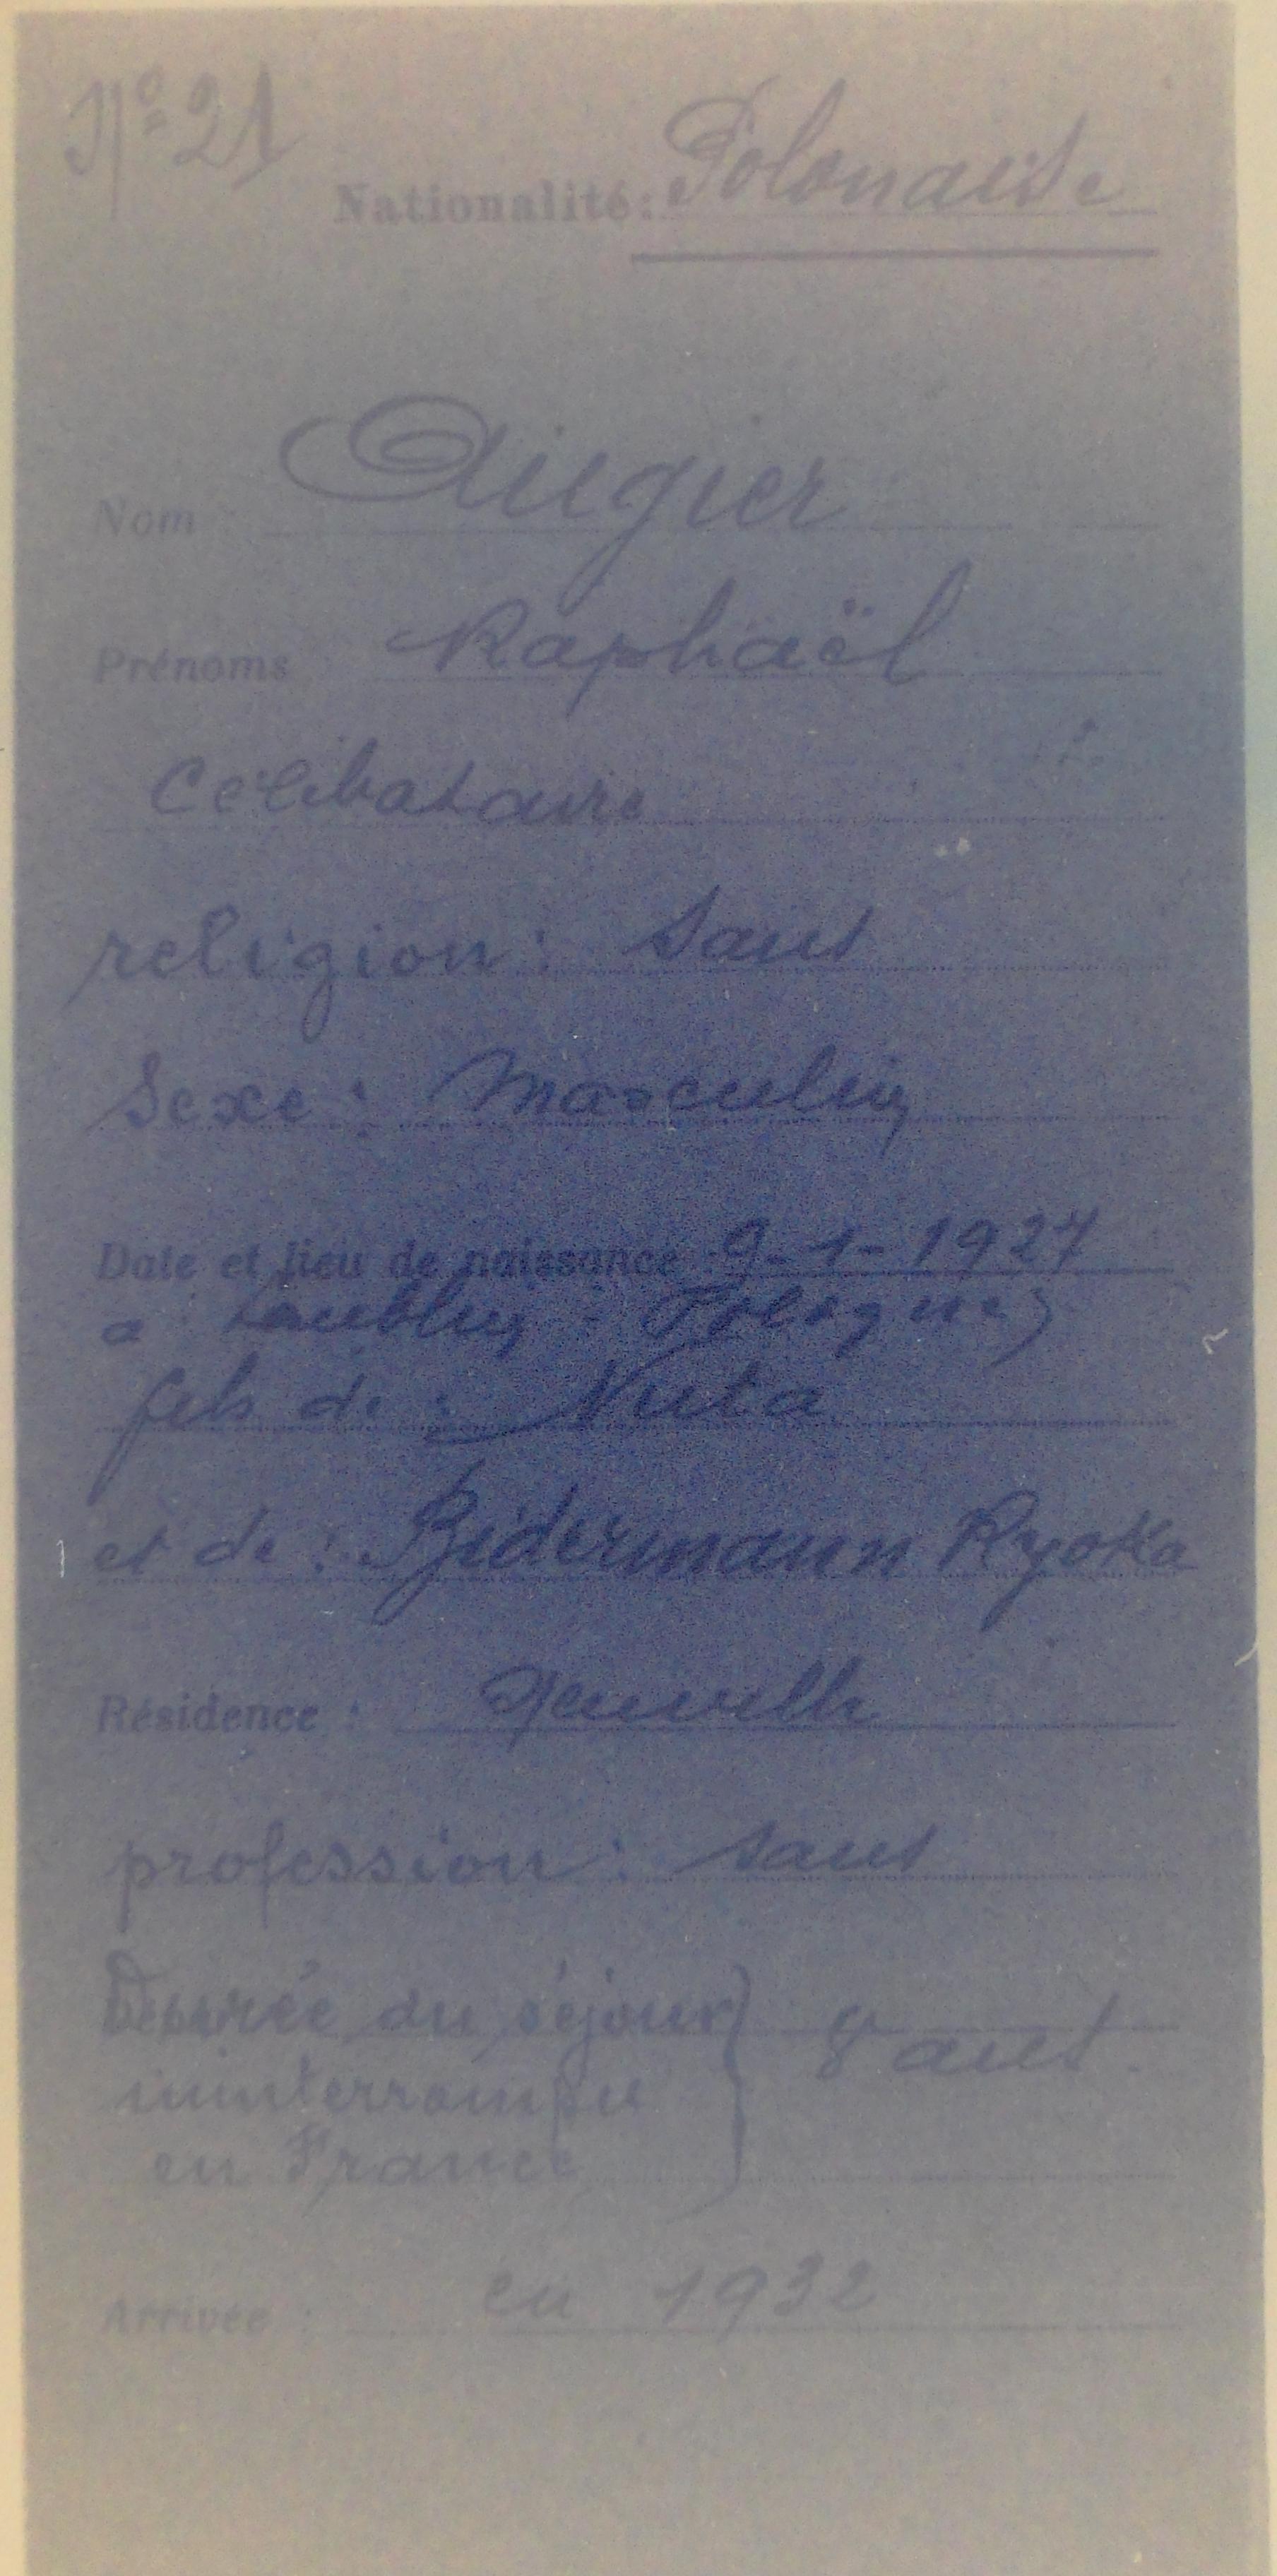 Nº 21
Nationalité: Polonaise
Nom : Augier
Prénoms : Raphaël
Célibataire
religion: sans
Sexe : Masculin
Date et lieu de naissance : 9-1-1927
a Loublin - Pologne
fils de : Nuta
et de : Bidermann Ryoka
Résidence :
profession : sans
Durée du séjour } 8 ans.
ininterrompu
en France
Arrivée : en 1932